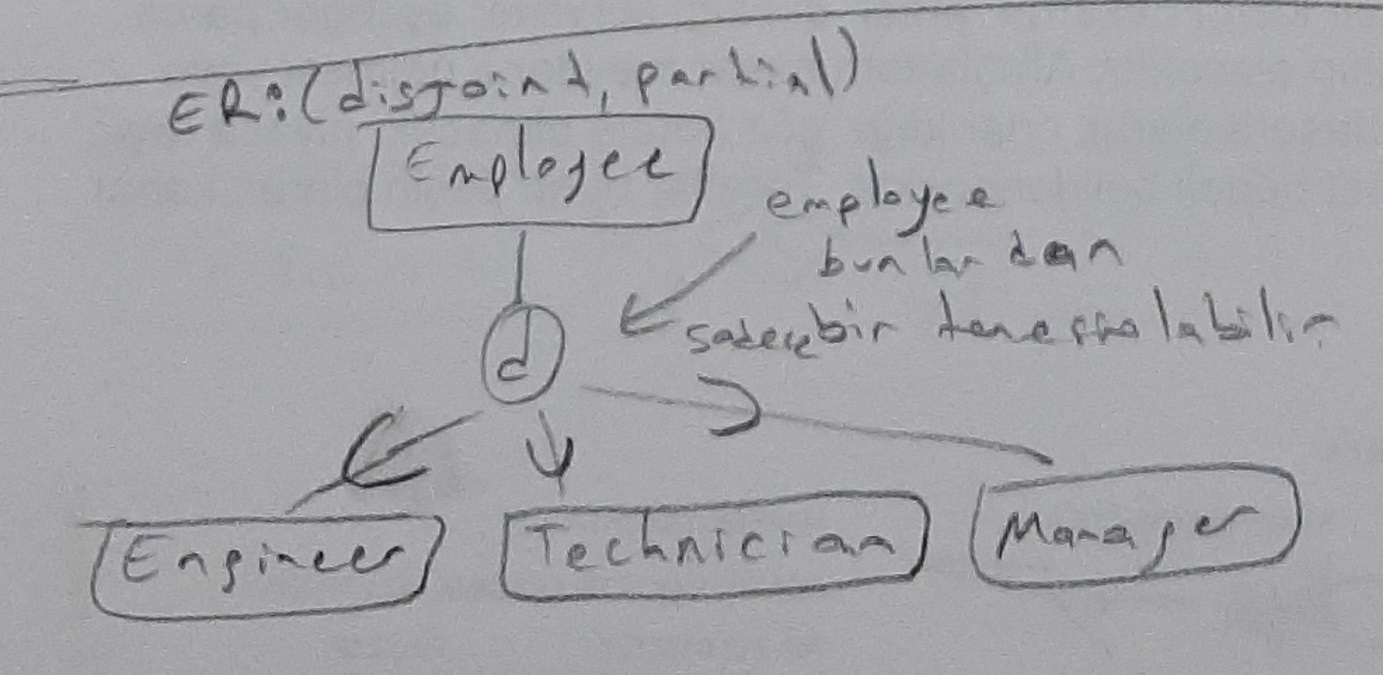 ER: (disjoint, partial)
Employee
employee
bunlardan
sadece bir tanesi olabilir
d
Engineer
Technician
Manager